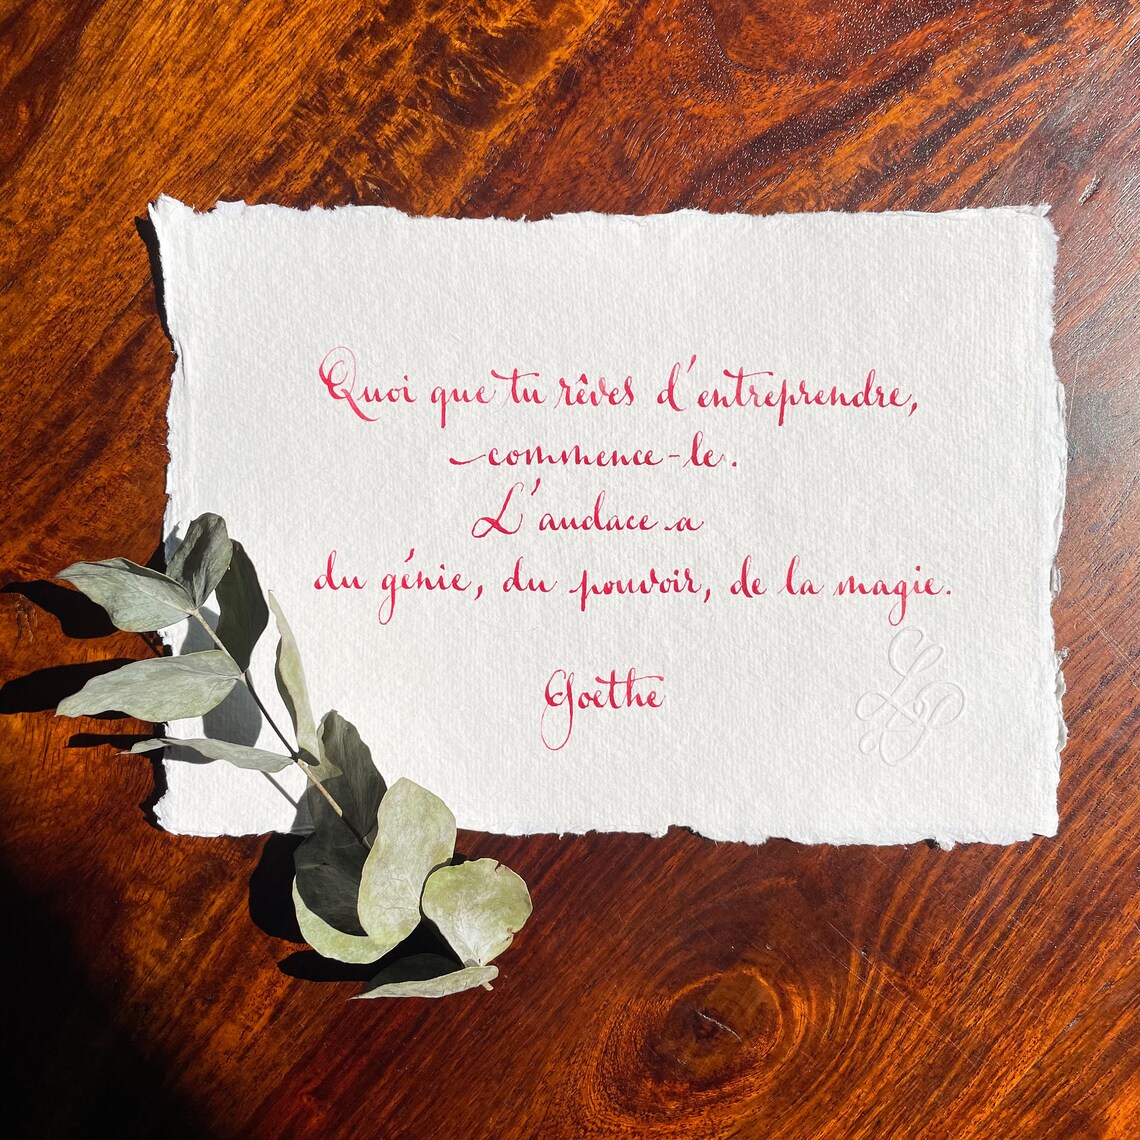 Quoi que tu rêves d'entreprendre,
commence-le.
L'audace a
du génie, du pouvoir, de la magie.
Goethe